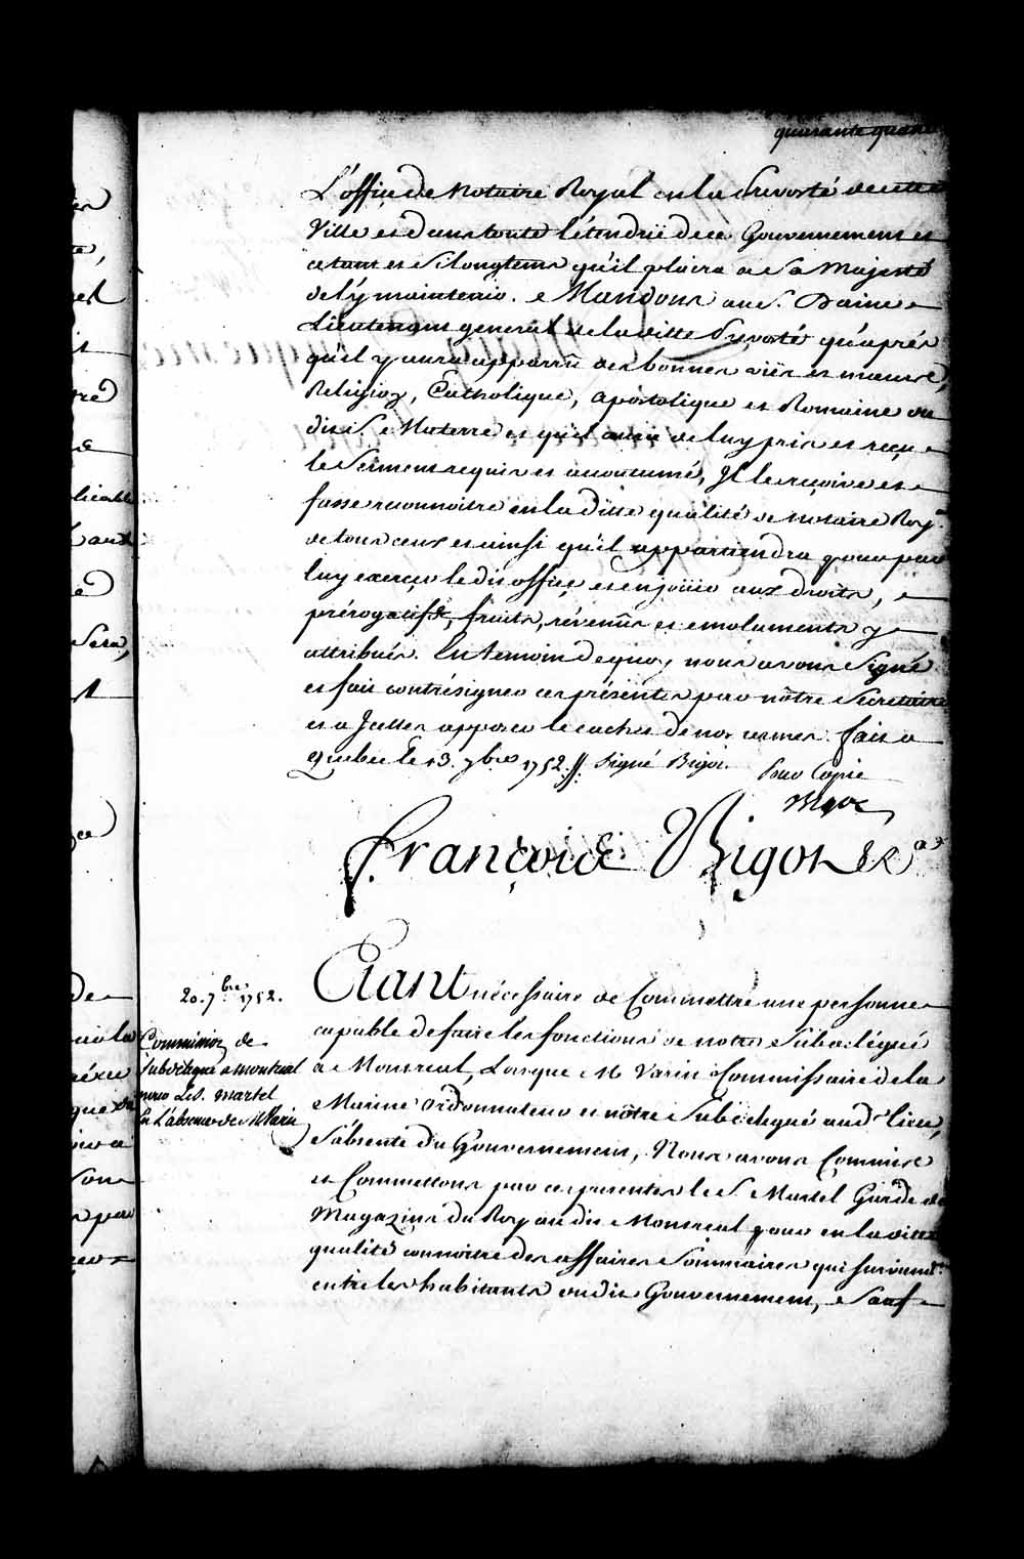 quarante quatre
L'office de Notaire Royal en la Prevosté de cette
Ville et dans toute l'étendüe de ce Gouvernement et
ce tant et Si longtems qu'il plaira a Sa Majesté
de l'y maintenir. Mandons au S. Daine
Lieutenant general de la ditte Prevosté qu'après
qu'il y aura apparu des bonnes vies et mœurs,
Religion, Catholique, apostolique et Romaine du
dit S. et qu'il aura de luy pris et reçu
le Serment requis et accoutumé, Il le reçoive et
fasse reconnoitre en la ditte qualité de notaire Roy.
de tous ceux et ainsi qu'il appartiendra pour par
luy exercer le dit office et en jouir aux droits,
prérogatifs, fruits, révenûs et emolumens y
attribués. En temoin de quoy nous avons Signé
et fait contresigner ces présentes par nôtre Secretaire
et a Icelles apposer le cachet de nos armes fait a
Quebec le 13. 7bre 1752 // Signé Bigot. Pour Copie
Bigot
François Bigot &c.a
20. 7bre 1752.
Commission de
Subdelegué a montreal
pour Le S. Martel
En L'absence de M Varin
Etant nécessaire de Commettre une personne
capable de faire les fonctions de notre Subdelégué
a Montreal, Lorsque M Varin Commissaire de la
Marine Ordonnateur et nôtre Subdelegué aud. lieu,
S'absente du Gouvernement, Nous avons Commis
et Commettons par ces presentes le S. Martel Garde de
Magazins du Roy au dit Montreal pour en la ditte
qualité connoitre des affaires Sommaires qui surviend.t
entre les habitants du dit Gouvernement, Sauf